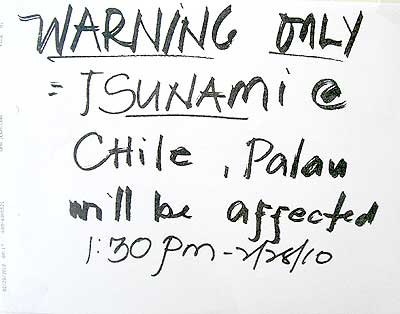 WARNING ONLY
= TSUNAMI @
CHile, Palau
will be affected
1:30 pm - 2/28/10